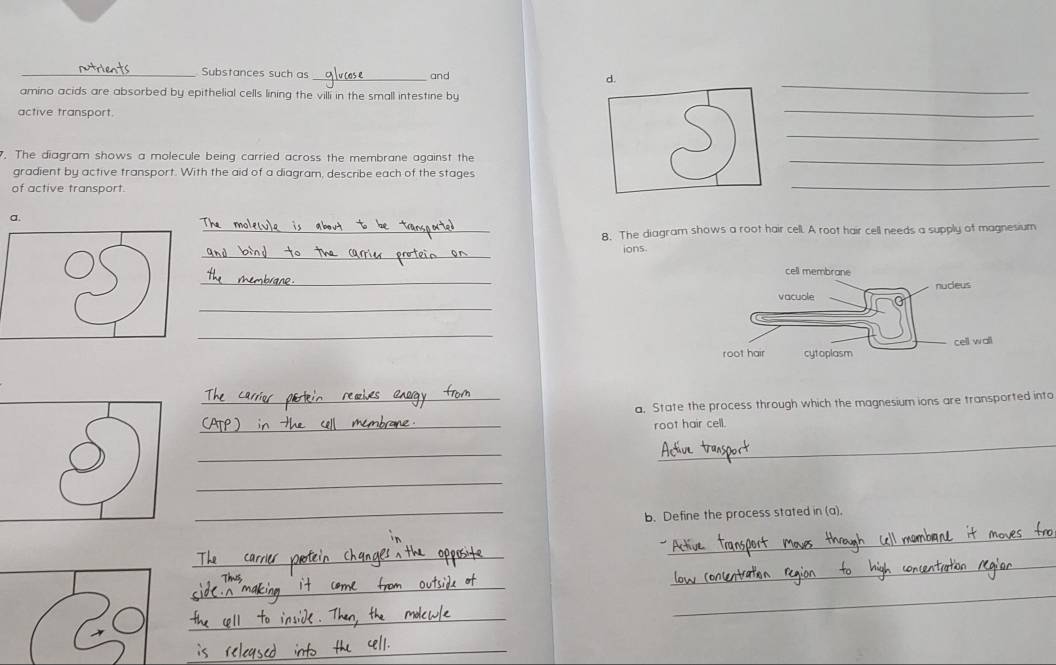 nutrients Substances such as glucose and
amino acids are absorbed by epithelial cells lining the villi in the small intestine by
active transport.
7. The diagram shows a molecule being carried across the membrane against the
gradient by active transport. With the aid of a diagram, describe each of the stages
of active transport.
a.
The molecule is about to be transported
and bind to the carrier protein on
the membrane.
The carrier protein receives energy from
(ATP) in the cell membrane.
The carrier protein changes in the opposite
side. Thus, making it come from outside of
the cell to inside. Then, the molecule
is released into the cell.
d.
8. The diagram shows a root hair cell. A root hair cell needs a supply of magnesium
ions.
cell membrane
nucleus
vacuole
cell wall
root hair cytoplasm
a. State the process through which the magnesium ions are transported into
root hair cell.
Active transport
b. Define the process stated in (a).
- Active transport moves through cell membrane it moves fro
low concentration region to high concentration region